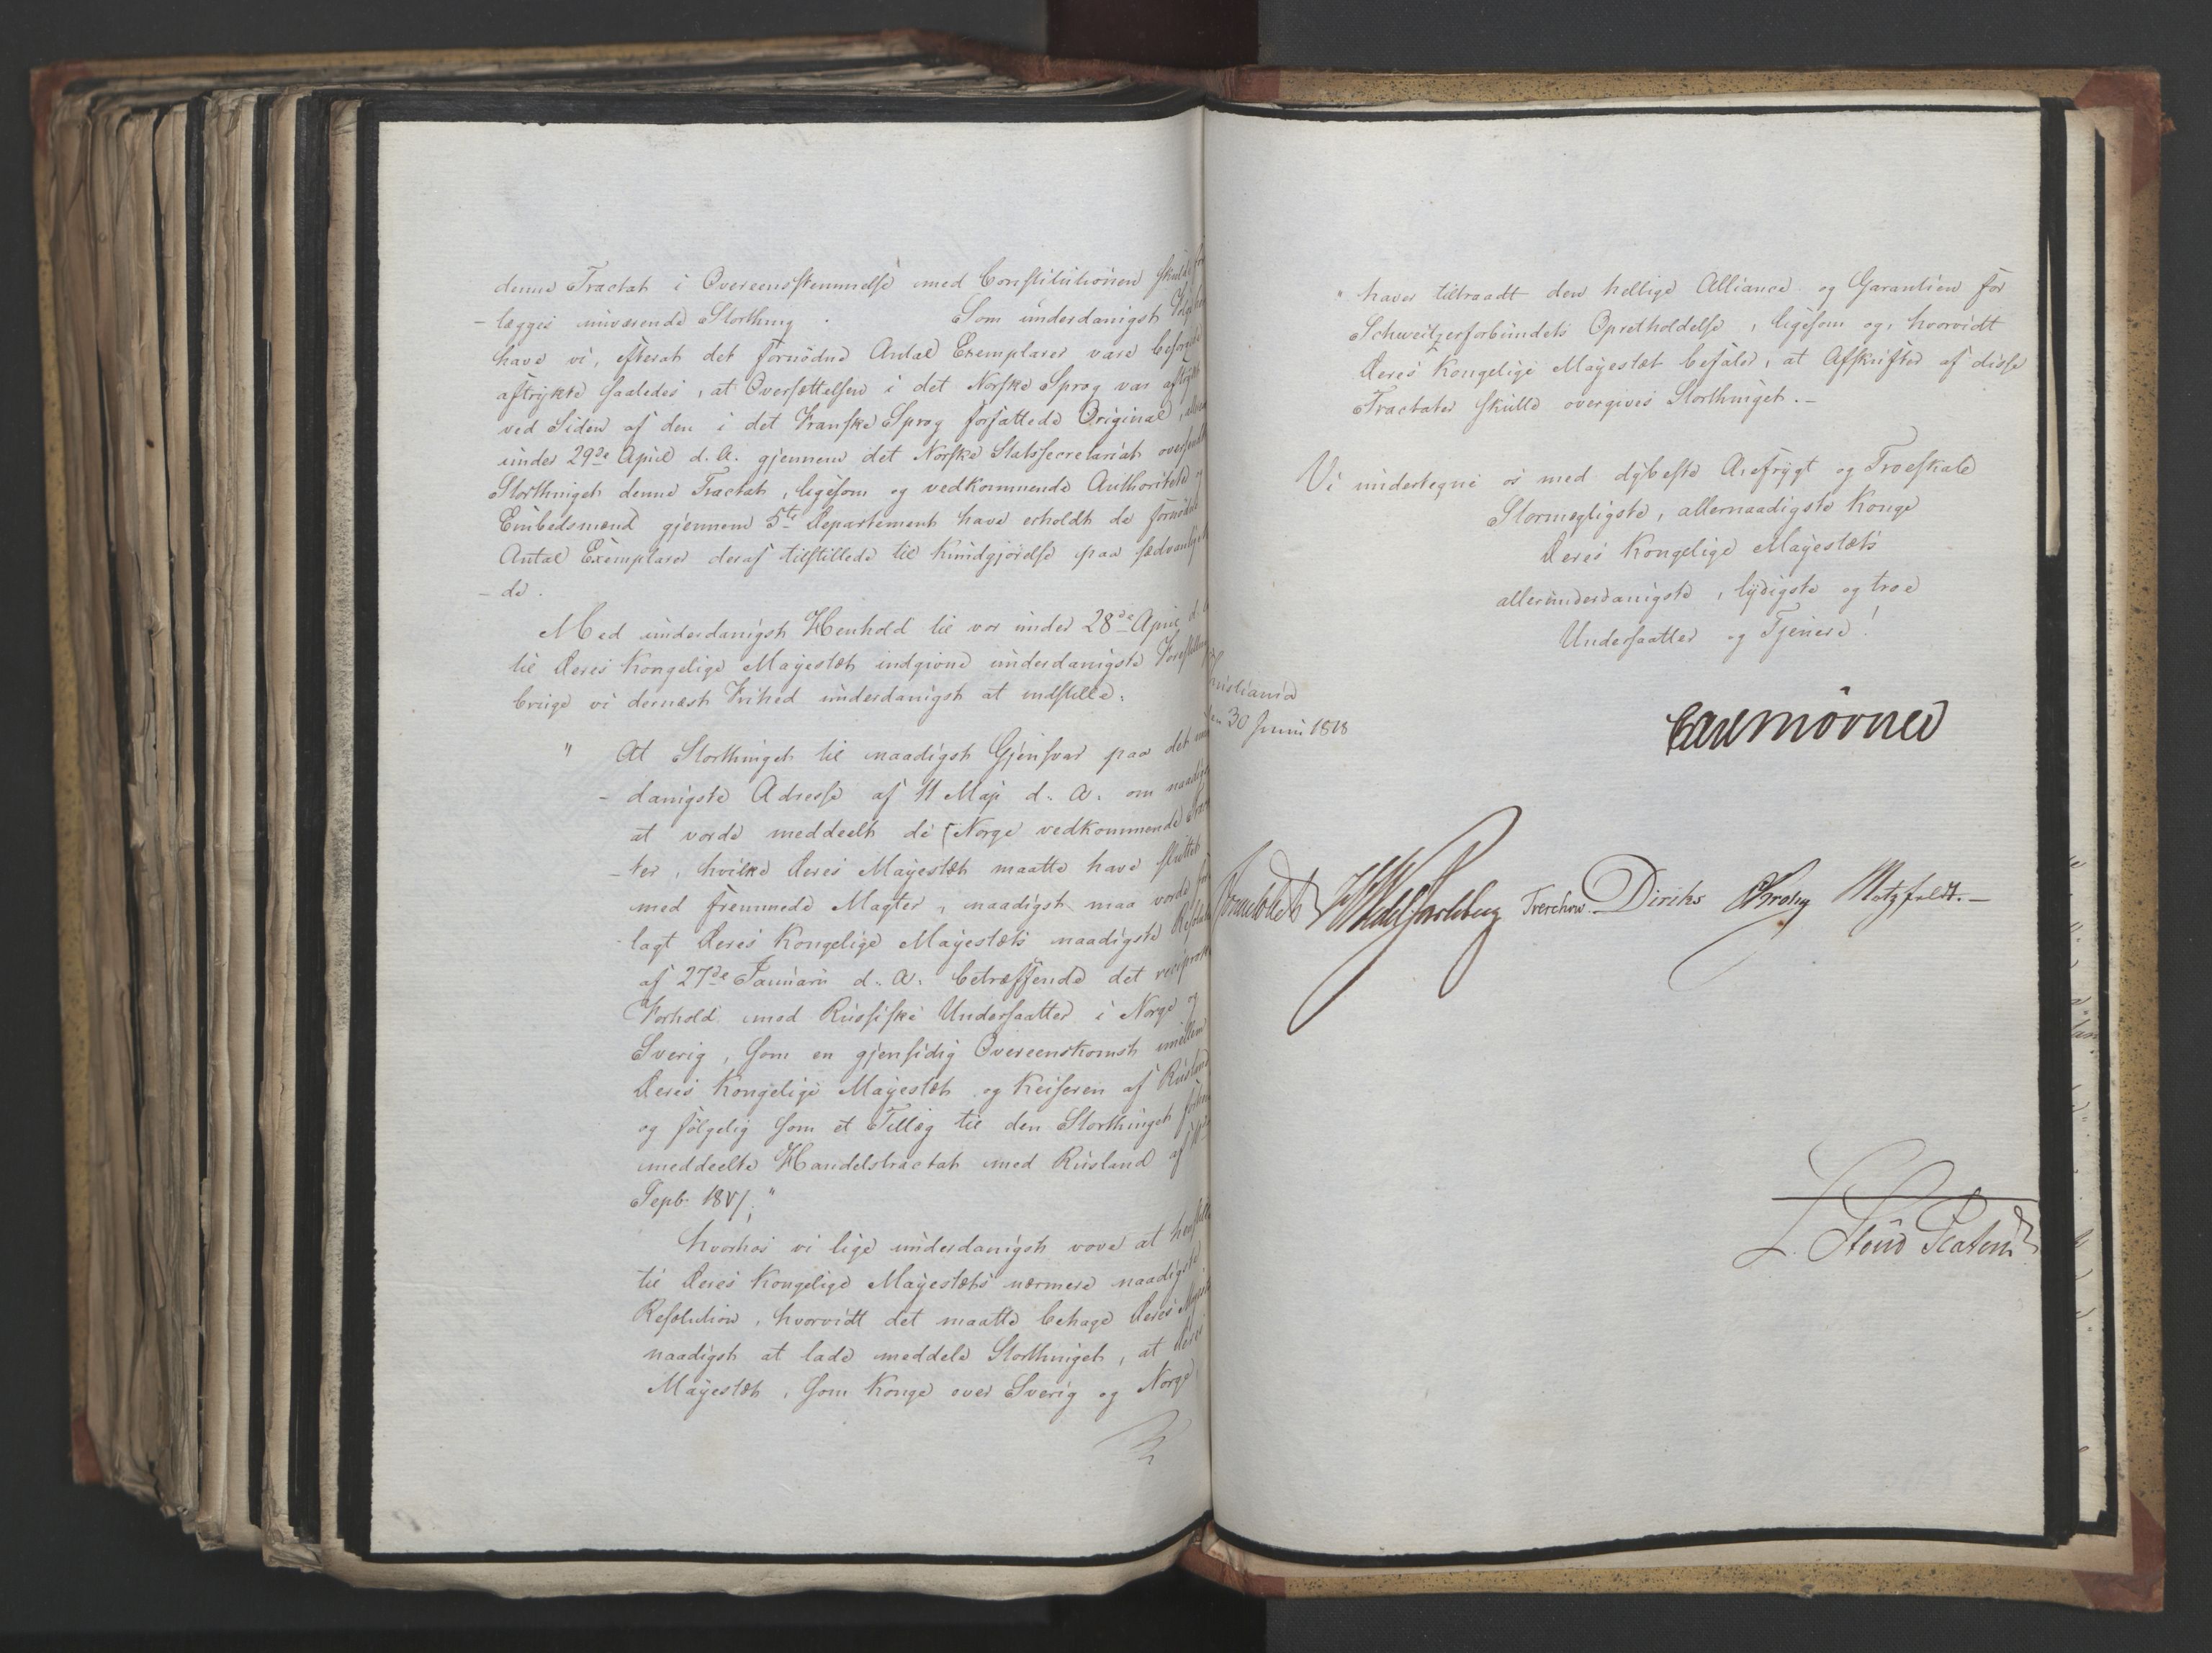 denne Tractat i Overeensstemmelse med Constitutionen skulde fore
- lægges nuværende Storthing. Som underdanigst Følge
have vi, efterat det fornødne Antal Exemplarer vare besørgede
aftrykte saaledes, at Oversættelsen i det Norske Sprog var aftrykt
ved Siden af den i det Franske Sprog forfattede Original,
under 29de April d. A. gjennem det Norske Statssecretariat oversendt
Storthinget denne Tractat, ligesom og vedkommende Authoriteter og
Embedsmænd gjennem 5te Departement have erholdt de fornødne
Antal Exemplarer deraf tilstillede til Kundgjørelse paa sædvanlig
- de.
Med underdanigst Henhold til vor under 28de April d. A.
til Deres Kongelige Mayestæt indgivne underdanigste Forestilling
bruge vi dernæst Frihed underdanigst at indstille:
" At Storthinget til naadigst Gjensvar paa det under
- danigste Adresse af 11 Maji d. A. om naadigst
at vorde meddeelt de Norge vedkommende Tracta
- ter, hvilke Deres Mayestæt maatte have sluttet
med fremmede Magter, naadigst maa vorde fore
- lagt Deres Kongelige Mayestæts naadigste
af 27de Januarii d. A. betræffende det reciproke
Forhold med Russiske Undersaatter i Norge og
Sverig, som en gjensidig Overeenskomst imellem
Deres Kongelige Mayestæt og Keiseren af Rusland
og følgelig som et Tillæg til den Storthinget forhen
meddeelte Handelstractat med Rusland af
Sepb. 1817;"
hvorhos vi lige underdanigst vove at henstille
til Deres Kongelige Mayestæts nærmere naadigste
Resolution, hvorvidt det maatte behage Deres Mayestæt
naadigst at lade meddele Storthinget, at Deres
Mayestæt, som Konge over Sverig og Norge,
" haver tiltraadt den hellige Alliance og Garantien for
Schweitzerforbundets Opretholdelse, ligesom og, hvorvidt
Deres Kongelige Mayestæt befaler, at Afskrifter af disse
Tractater skulle overgives Storthinget. -
Vi undertegne os med dybeste Ærefrygt og Troeskab
Stormægtigste, allernaadigste Konge
Deres Kongelige Mayestæts
allerunderdanigste, lydigste og troe
Undersaatter og Tjenere!
Christiania
den 30 Juni 1818
Carl Mörner
Sommerhielm HWedel Jarlsberg Treschow. Diriks CKrohg Motzfeldt. -
L. Stoud Platou